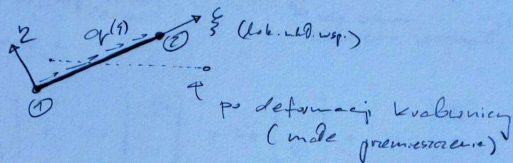 η q(ξ) ② ξ (lok. ukł. wsp.)
①
po deformacji kratownicy
(małe przemieszczenie)